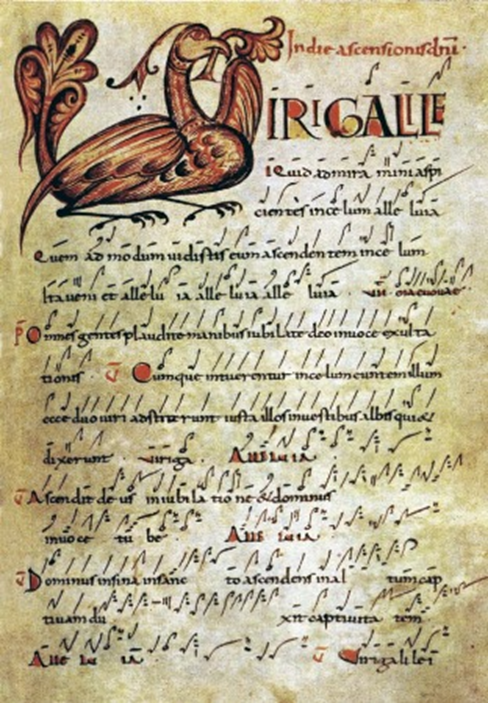 In die ascensionis dni.
VIRI GALILE
i Quid admira mini aspi
cientes in celum alle luia
Quem ad modum uidistis eum ascendentem ince lum
Ita veni et alle lu ia alle lu ia alle luia
Omnes gentes plaudite manibus iubilate deo inuoce exulta
tionis Cumque intuerentur in celum euntem illum
ecce duo uiri adstiterunt iuxta illos inuestibus albis qui &
dixerunt uiriga Alle lu ia
Ascendit deus in iubila tio ne & dominus
inuoce tu be Alle lu ia
Dominus insina insanc to ascendens in al tum cap
tiuam du xit captiuita tem
Alle lu ia Viri galilei